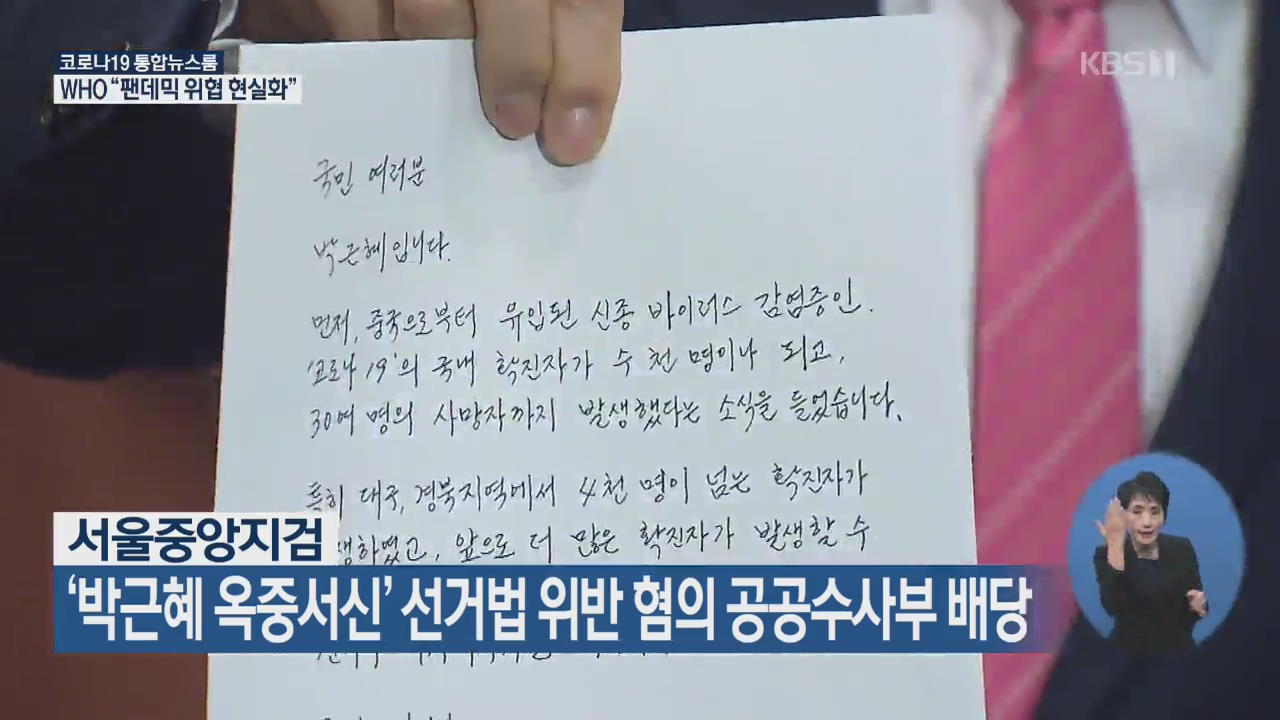 코로나19 통합뉴스룸
WHO “팬데믹 위협 현실화”
KBS 1
국민 여러분
박근혜입니다.
먼저, 중국으로부터 유입된 신종 바이러스 감염증인.
'코로나 19'의 국내 확진자가 수 천 명이나 되고,
30여 명의 사망자까지 발생했다는 소식을 들었습니다.
특히 대구, 경북지역에서 4천 명이 넘는 확진자가
앞으로 더 많은 확진자가 발생할 수
서울중앙지검
‘박근혜 옥중서신’ 선거법 위반 혐의 공공수사부 배당